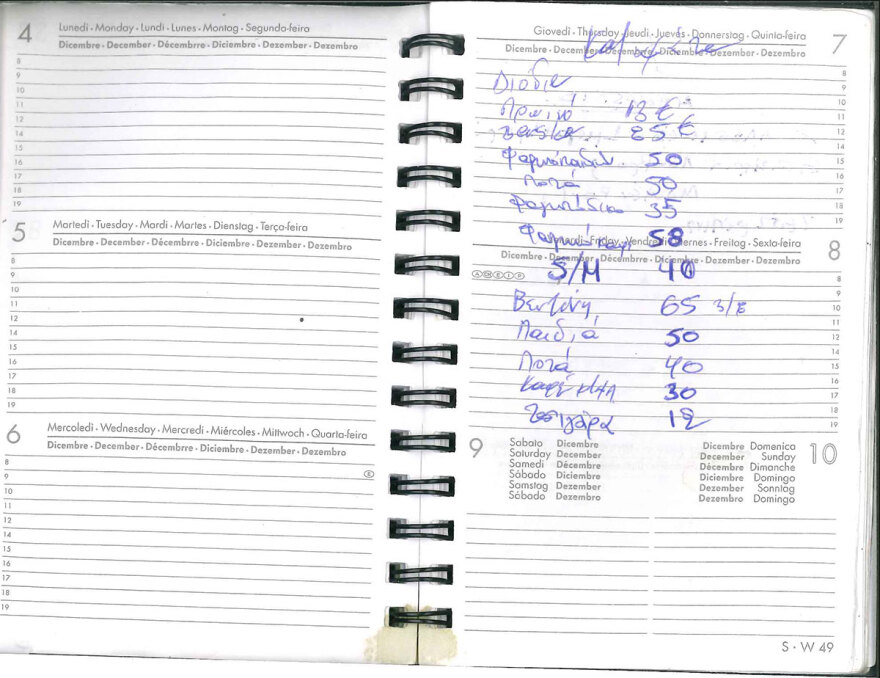 4 Lunedì • Monday • Lundi • Lunes • Montag • Segunda-feira
Dicembre • December • Décembre • Diciembre • Dezember • Dezembro
8
9
10
11
12
14
15
16
17
18
19
5 Martedì • Tuesday • Mardi • Martes • Dienstag • Terça-feira
Dicembre • December • Décembre • Diciembre • Dezember • Dezembro
8
9
10
11
12
14
15
16
17
18
19
6 Mercoledì • Wednesday • Mercredi • Miércoles • Mittwoch • Quarta-feira
Dicembre • December • Décembre • Diciembre • Dezember • Dezembro
8
9
10
11
12
14
15
16
17
18
19
Giovedì • Thursday • Jeudi • Jueves • Donnerstag • Quinta-feira 7
Dicembre • December • Décembre • Diciembre • Dezember • Dezembro
Διόδια
Πρωινό 13 €
25 €
50
Ποτά 50
35
58
Venerdì • Friday • Vendredi • Viernes • Freitag • Sexta-feira 8
Dicembre • December • Décembre • Diciembre • Dezember • Dezembro
S/M 40
Βενζίνη 65 3/Ε
Παιδιά 50
Ποτά 40
30
Τσιγάρα 12
9 Sabato Dicembre
Saturday December
Samedi Décembre
Sábado Diciembre
Samstag Dezember
Sábado Dezembro
Dicembre Domenica 10
December Sunday
Décembre Dimanche
Diciembre Domingo
Dezember Sonntag
Dezembro Domingo
S • W 49